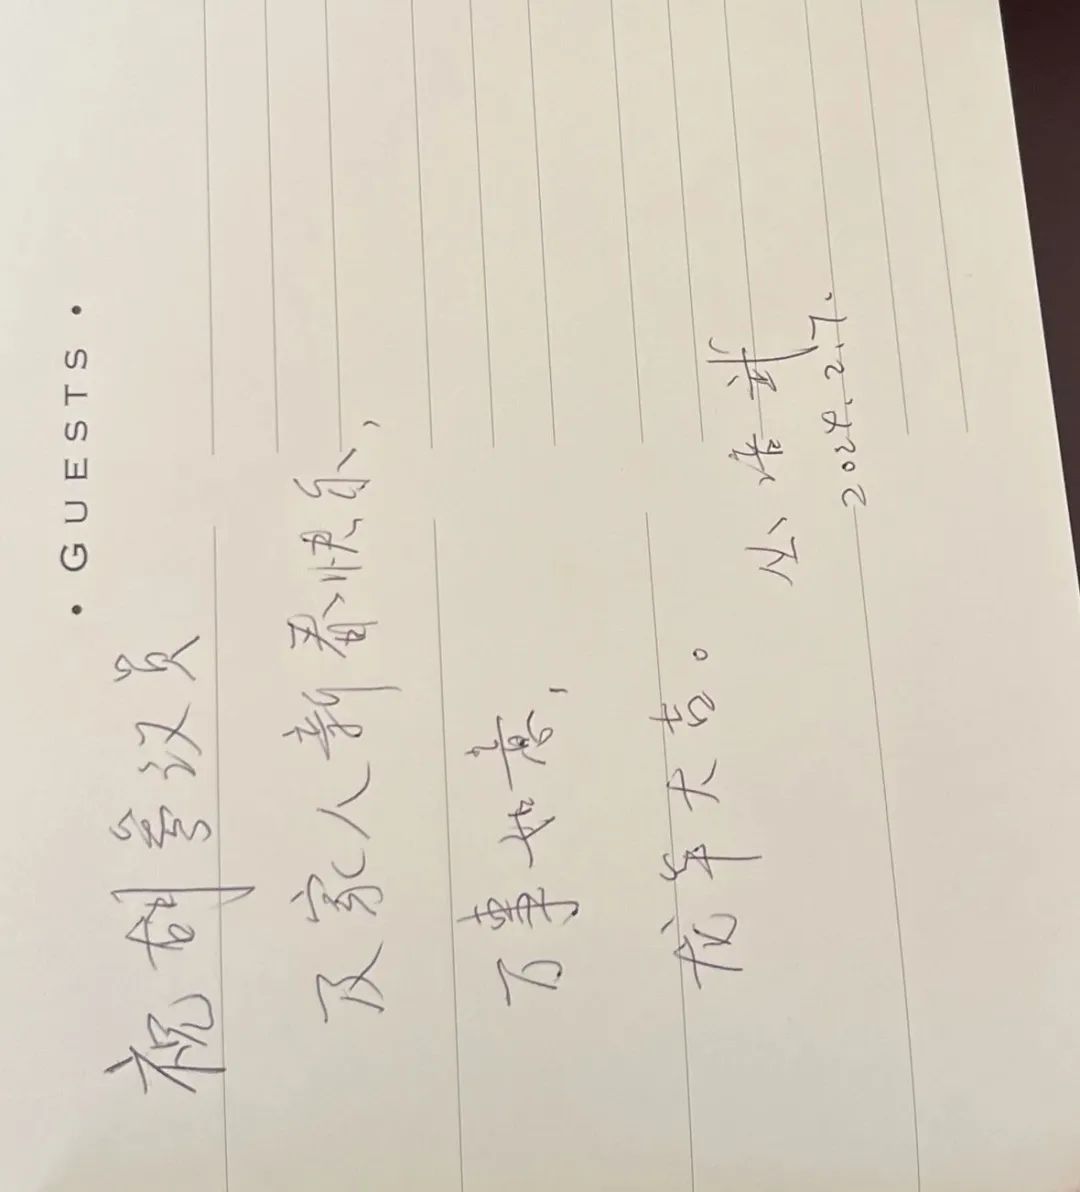 · GUESTS ·
祝 议员
及家人新春快乐,
万事如意,
龙年大吉。
丛培武
2024.2.7.